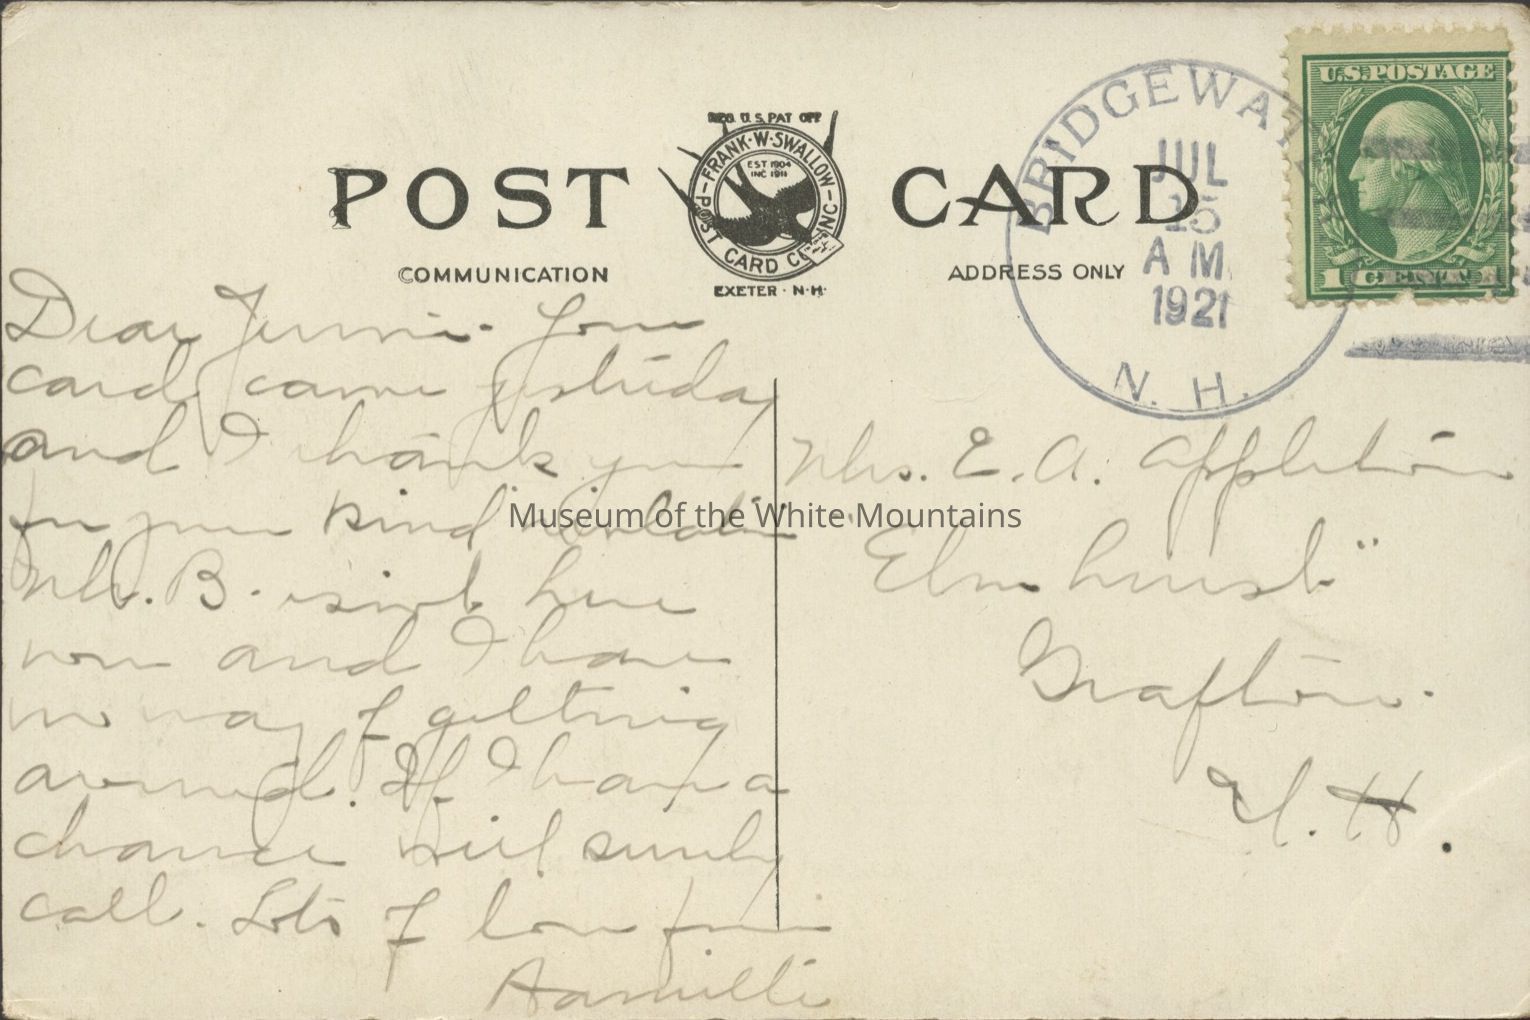 BRIDGEWAT
JUL
15
A M
1921
N. H.
U.S. POSTAGE
1 CENT 1
REG. U.S. PAT OFF
FRANK·W·SWALLOW
EST 1904
INC 1911
POST CARD CO INC
EXETER · N·H·
POST CARD
COMMUNICATION
ADDRESS ONLY
Dear Jennie. Your
card came yesterday
and I thank you
for your kind invitation
Mr. B. isn't here
now and I have
no way of getting
around. If I have a
chance will surely
call. Lots of love from
Mrs. E. A. Appleton
"Elmhurst"
Grafton.
N. H.
Museum of the White Mountains